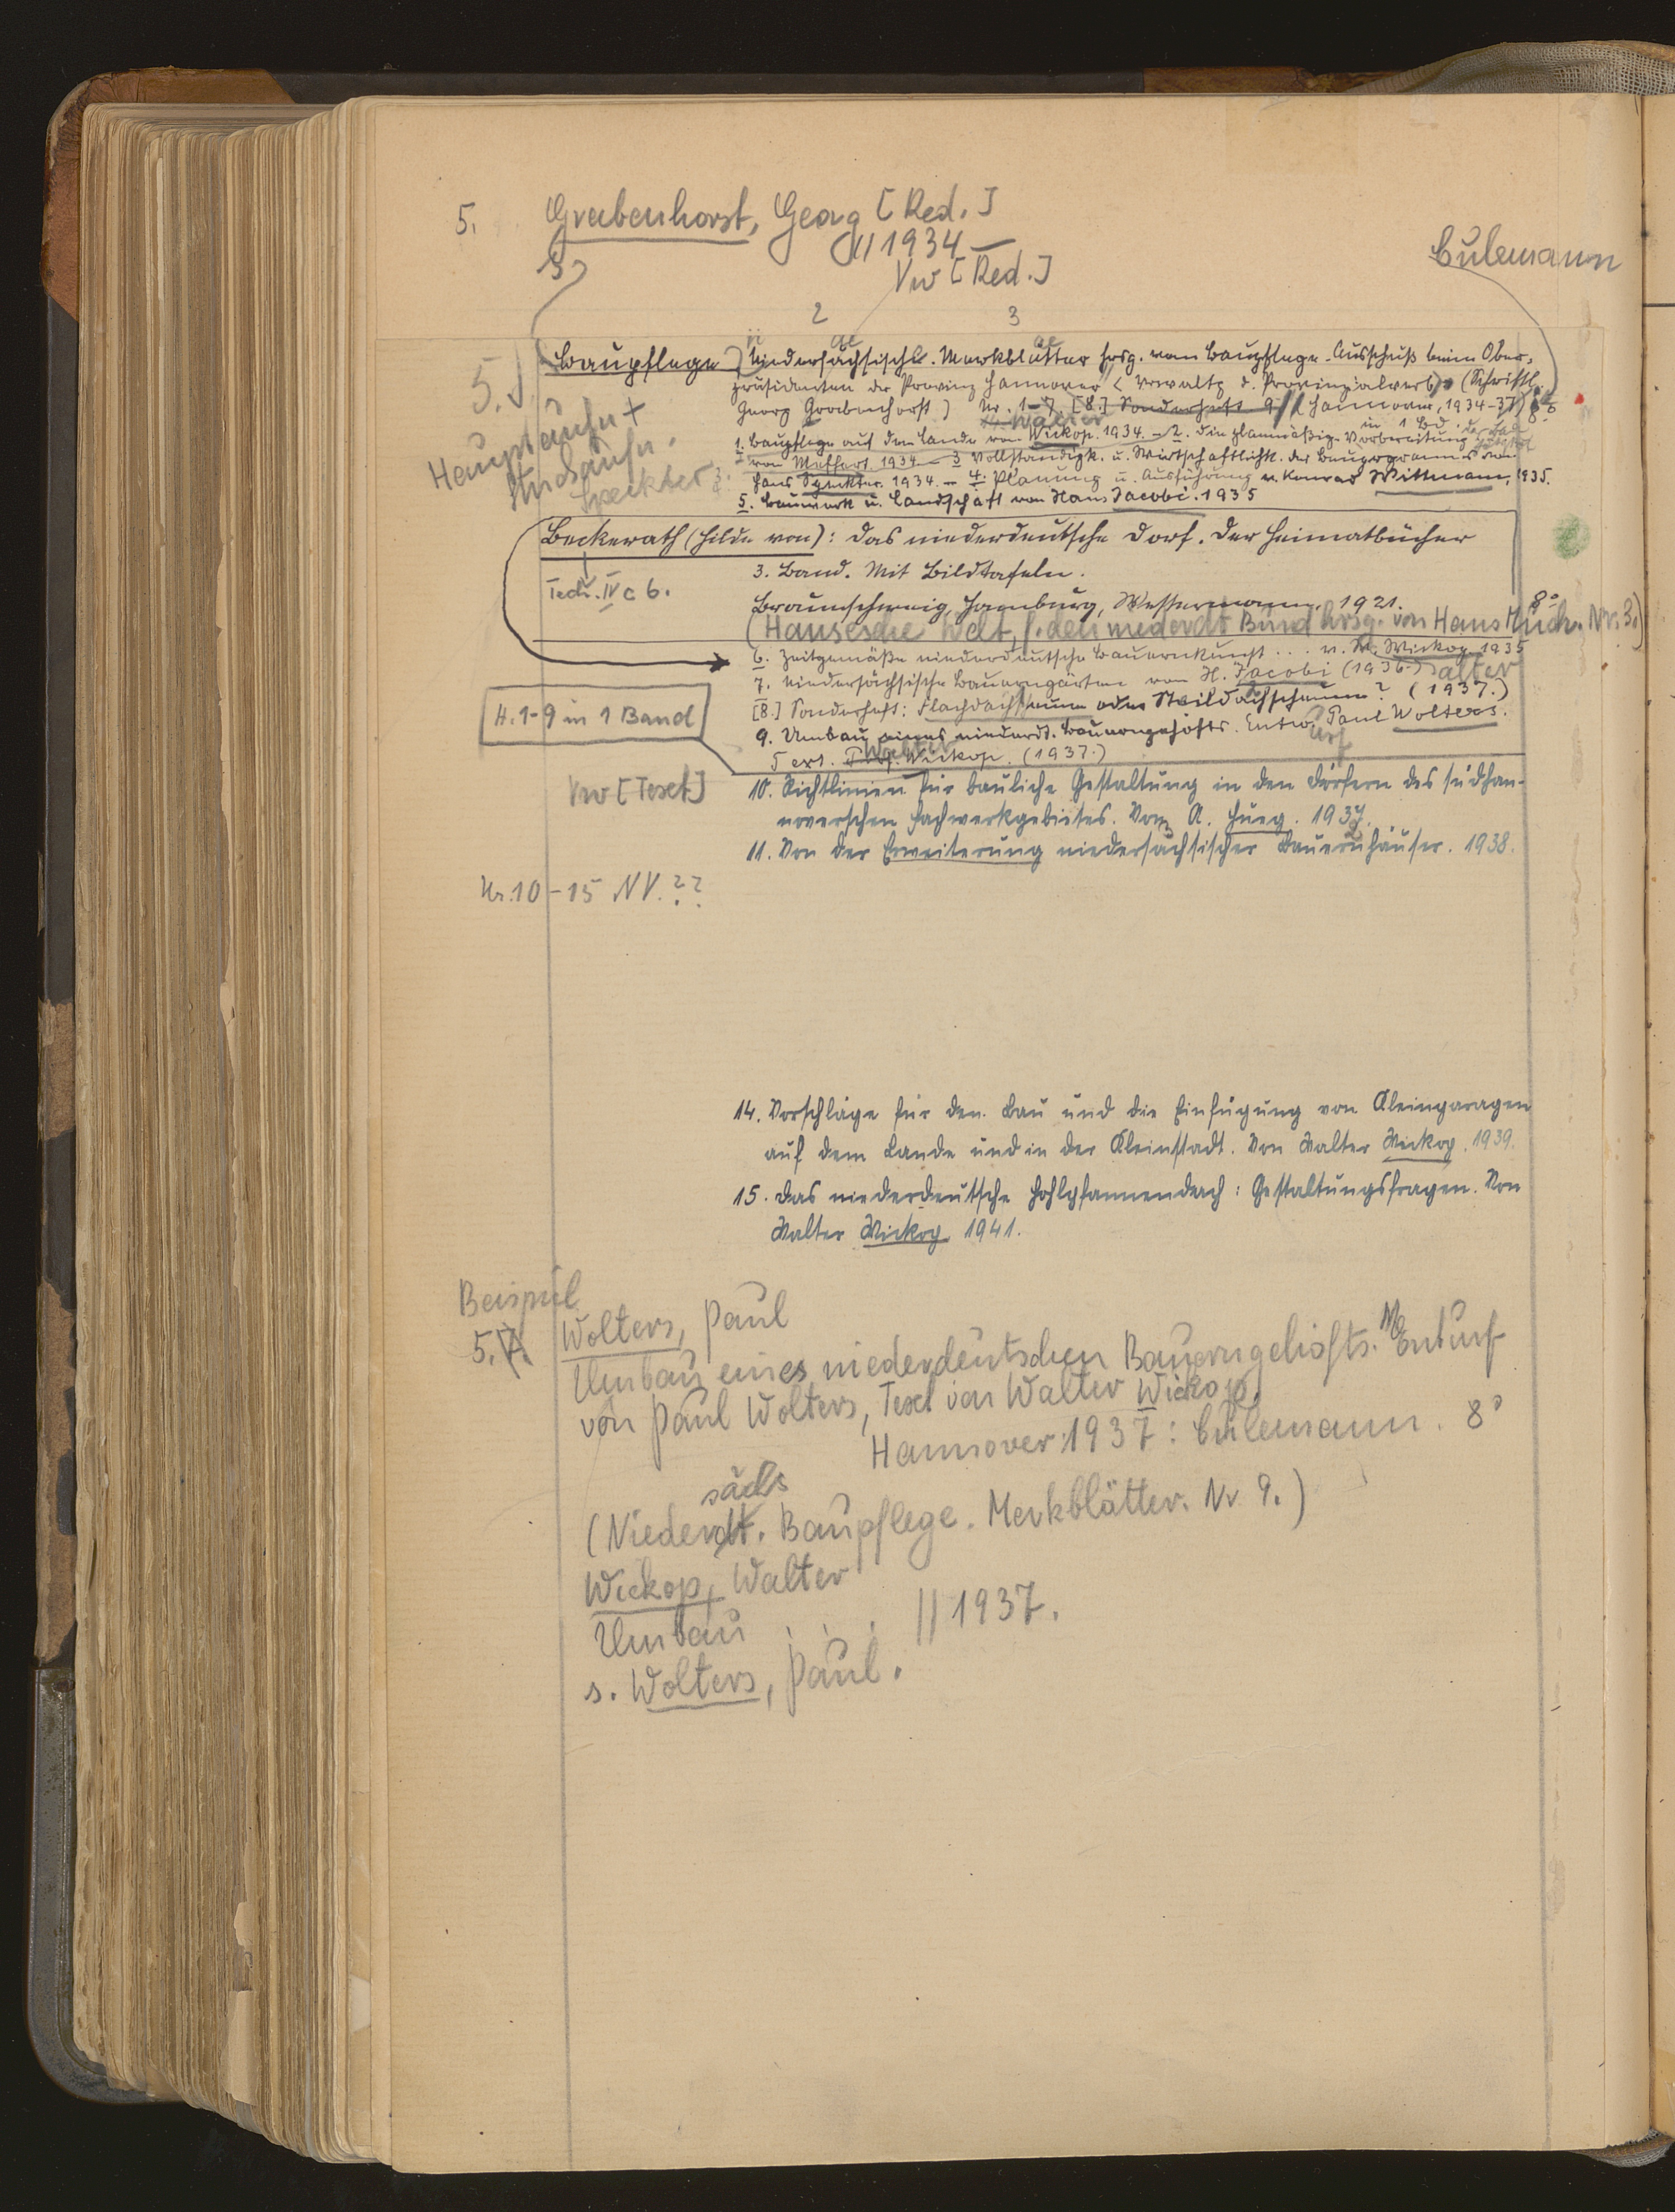 5. Grabenhorst, Georg [Red.]
// 1934 —
Vw [Red.]
Culemann
2 3
5.
Hauptaufn +
Stückaufn.
Speckter
Baupflege, Niedersächsische. Merkblätter hrsg. vom Baupflege-Ausschuß beim Ober-
präsidenten der Provinz Hannover < Verwaltg d. Provinzialverb.> (Schriftl.
Georg Grabenhorst) Nr. 1-7, [8.] Sonderheft 9 // (Hannover, 1934-37) 8°
Walter in 1 Bd.
1. Baupflege auf dem Lande von Wickop. 1934. – 2. Die planmäßige Vorbereitung
von Meffert. 1934. – 3 Vollständigk. u. Wirtschaftlichk. der Bauprogramme von
Hans Speckter. 1934. – 4. Planung u. Ausführung v. Konrad Wittmann, 1935.
5. Bauwerk u. Landschaft von Hans Jacobi. 1935
Beckerath (Hilde von): Das niederdeutsche Dorf. Der Heimatbücher
3. Band. Mit Bildtafeln.
Tech. IV c 6.
Braunschweig, Hamburg, Westermann, 1921. 8°
(Hansische Welt, f. den niederdt Bund hrsg. von Hans Much. Nr. 3.)
6. Zeitgemäße niederdeutsche Bauernkunst ... v. W. Wickop 1935
alter
7. Niedersächsische Bauerngärten von H. Jacobi (1936.)
H. 1-9 in 1 Band
[8.] Sonderheft: Flachdachscheune oder Steildachscheune? (1937.)
9. Umbau eines niederdt. Bauerngehöfts. Entw. Paul Wolters.
urf
Text. Prof. Wickop. (1937.)
Walter
Vw [Text]
10. Richtlinien für bauliche Gestaltung in den Dörfern des südhan-
noverschen Fachwerkgebietes. Von A. Hueg. 1937.
11. Von der Erweiterung niedersächsischer Bauernhäuser. 1938.
Nr. 10-15 NV. ??
14. Vorschläge für den Bau und die Einfügung von Kleingaragen
auf dem Lande und in der Kleinstadt. Von Walter Wickop. 1939.
15. Das niederdeutsche Hohlpfannendach: Gestaltungsfragen. Von
Walter Wickop. 1941.
Beispiel
5. A. Wolters, Paul
Umbau eines niederdeutschen Bauerngehöfts. Entwurf
von Paul Wolters, Text von Walter Wickop.
Hannover 1937: Culemann. 8°
sächs
(Niederdt. Baupflege. Merkblätter. Nr 9.)
Wickop, Walter
Umbau . . . // 1937.
s. Wolters, Paul.